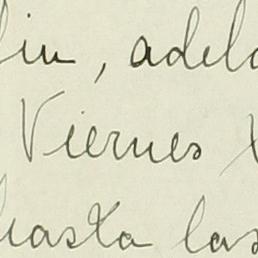 , adel
Viernes
hasta las